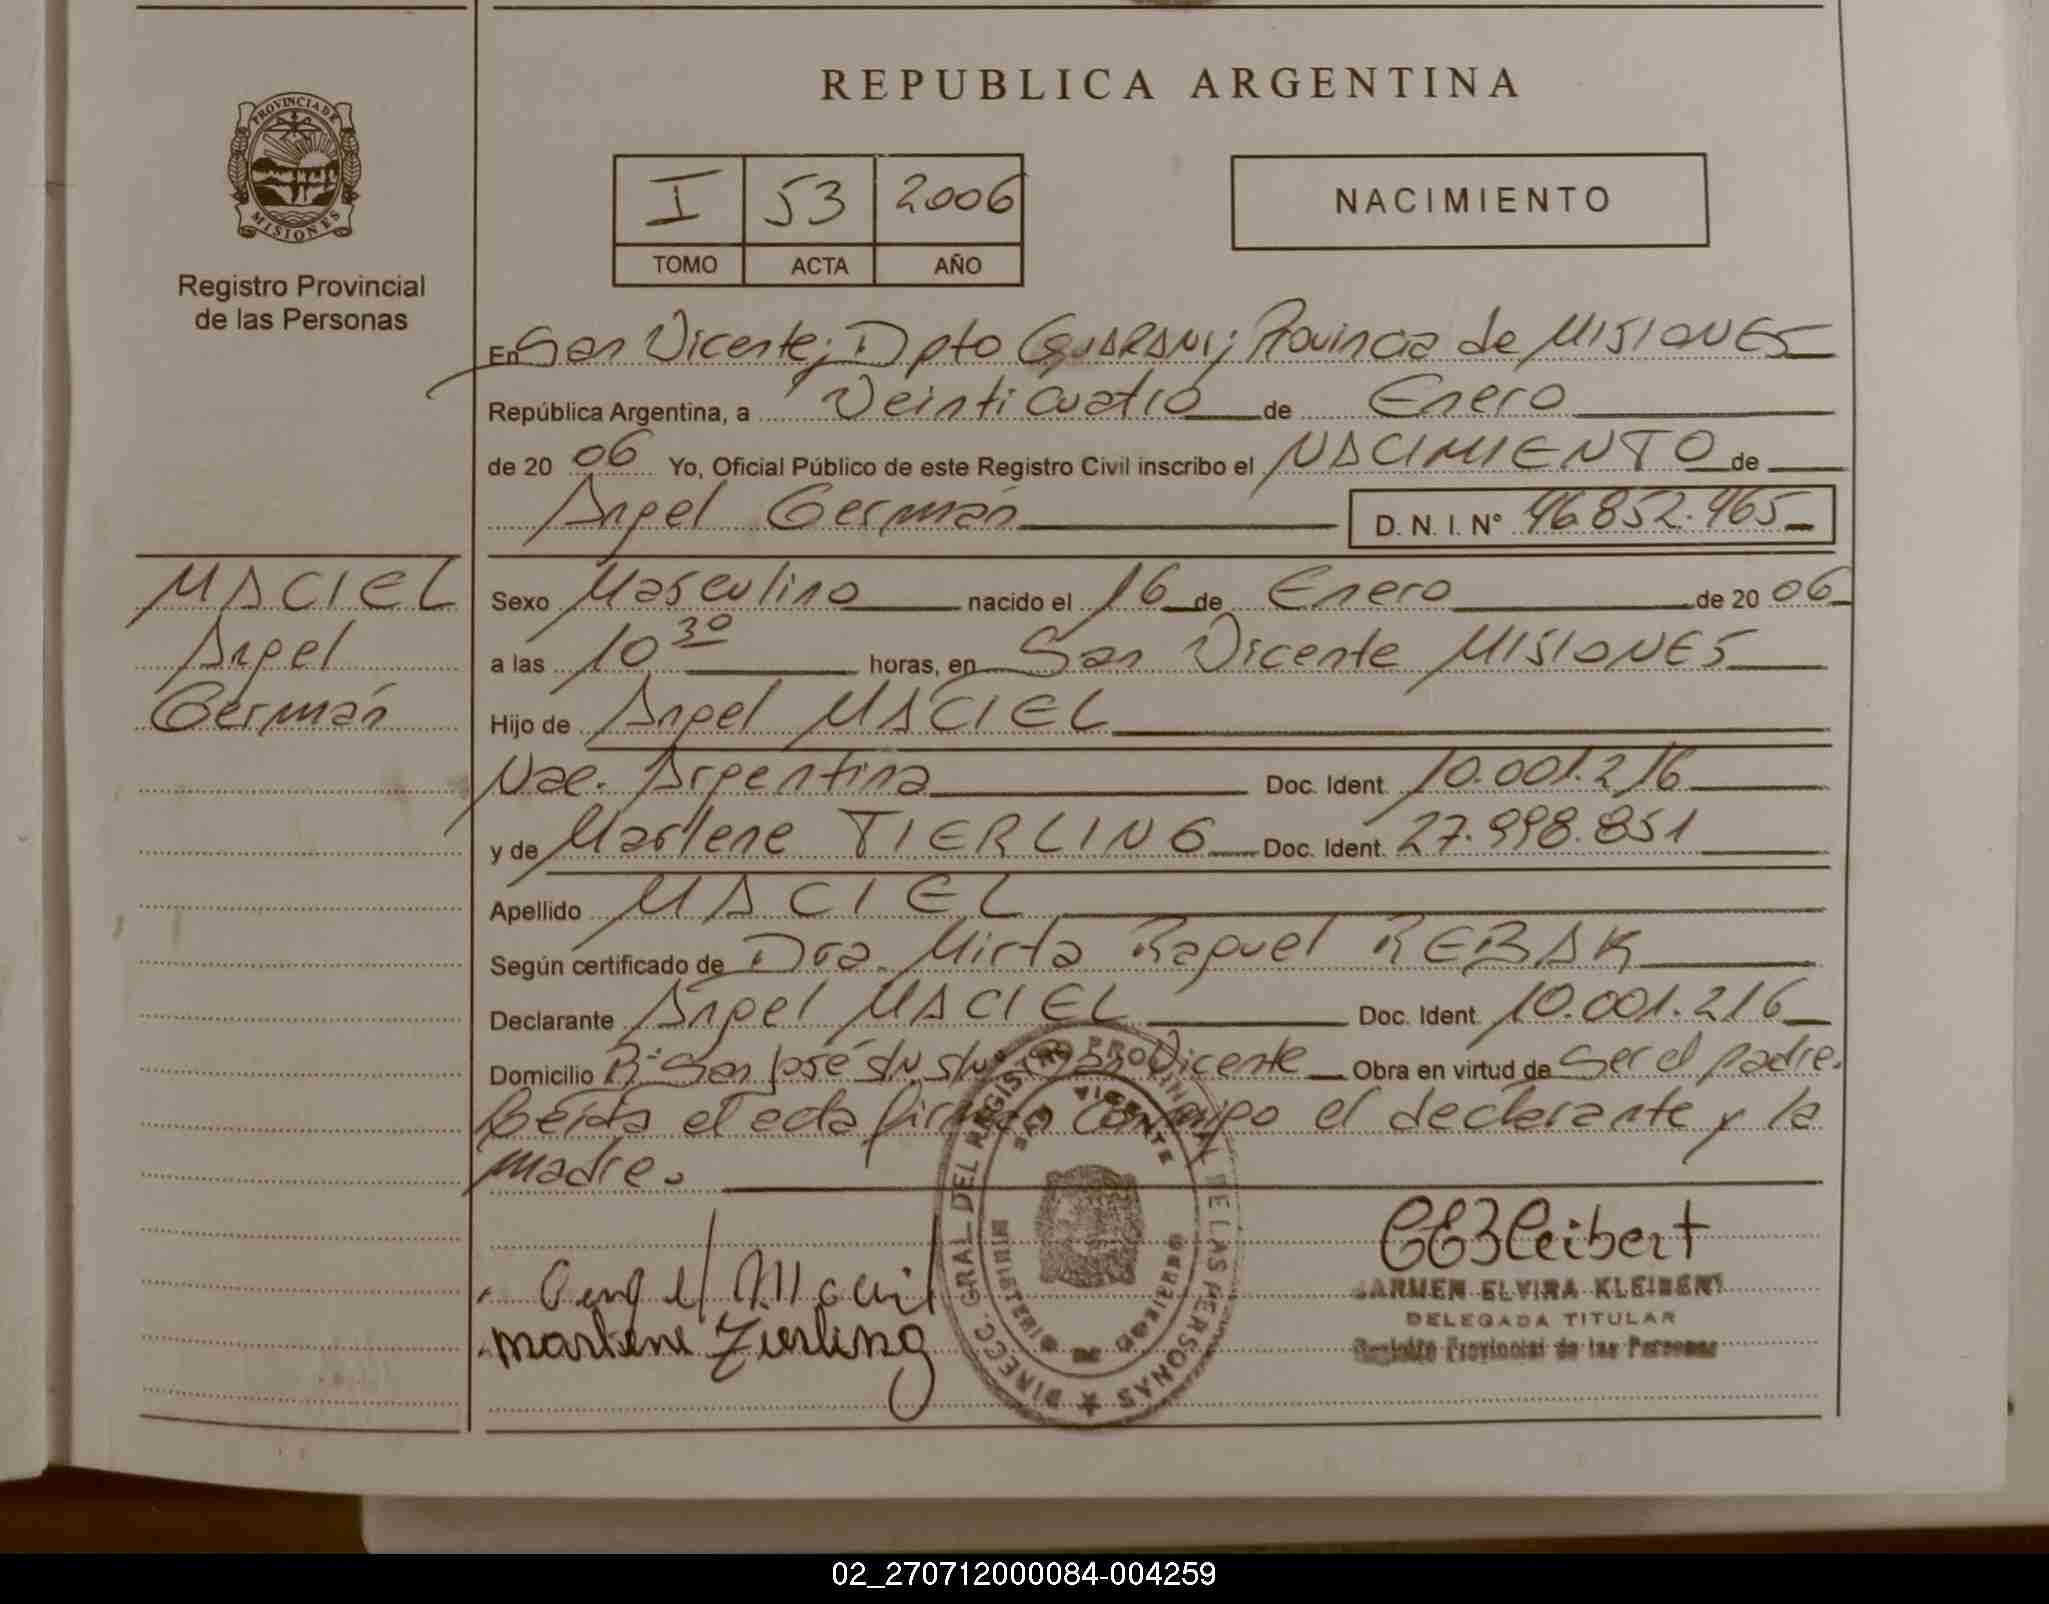 PROVINCIA DE
MISIONES
Registro Provincial
de las Personas
REPUBLICA ARGENTINA
I 53 2006
TOMO ACTA AÑO
NACIMIENTO
En San Vicente; Dpto GUARANI; Provincia de MISIONES
República Argentina, a Veinticuatro de Enero
de 20 06 Yo, Oficial Público de este Registro Civil inscribo el NACIMIENTO de
Angel Germán D. N. I. N° 46.852.465
MACIEL
Angel
Germán
Sexo Masculino nacido el 16 de Enero de 20 06
a las 10 30 horas, en San Vicente MISIONES
Hijo de Angel MACIEL
Nac. Argentina Doc. Ident. 10.001.216
y de Marlene TIERLING Doc. Ident. 27.998.851
Apellido MACIEL
Según certificado de Dra. Mirta Raquel REBAK
Declarante Angel MACIEL Doc. Ident. 10.001.216
Domicilio B° San José s/n San Vicente Obra en virtud de Ser el padre.
Leída el acta firman conmigo el declarante y la
madre.
DIREC. GRAL. DEL REGISTRO PROVINCIAL DE LAS PERSONAS
SAN VICENTE
MINISTERIO DE GOBIERNO
Angel Maciel
Marlene Tierling
CEKleibert
CARMEN ELVIRA KLEIBERT
DELEGADA TITULAR
Registro Provincial de las Personas
02_270712000084-004259